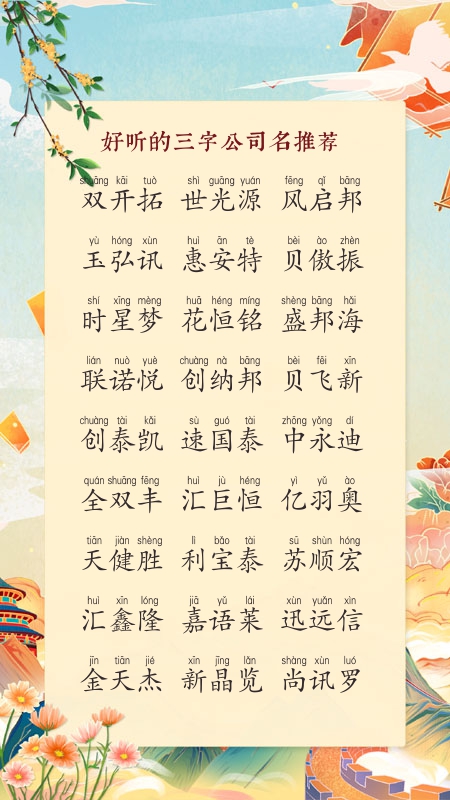 好听的三字公司名推荐
shuāng kāi tuò shì guāng yuán fēng qǐ bāng
双开拓 世光源 风启邦
yù hóng xùn huì ān tè bèi ào zhèn
玉弘讯 惠安特 贝傲振
shí xīng mèng huā héng míng shèng bāng hǎi
时星梦 花恒铭 盛邦海
lián nuò yuè chuàng nà bāng bèi fēi xīn
联诺悦 创纳邦 贝飞新
chuàng tài kǎi sù guó tài zhōng yǒng dí
创泰凯 速国泰 中永迪
quán shuāng fēng huì jù héng yì yǔ ào
全双丰 汇巨恒 亿羽奥
tiān jiàn shèng lì bǎo tài sū shùn hóng
天健胜 利宝泰 苏顺宏
huì xīn lóng jiā yǔ lái xùn yuǎn xìn
汇鑫隆 嘉语莱 迅远信
jīn tiān jié xīn jīng lǎn shàng xùn luó
金天杰 新晶览 尚讯罗